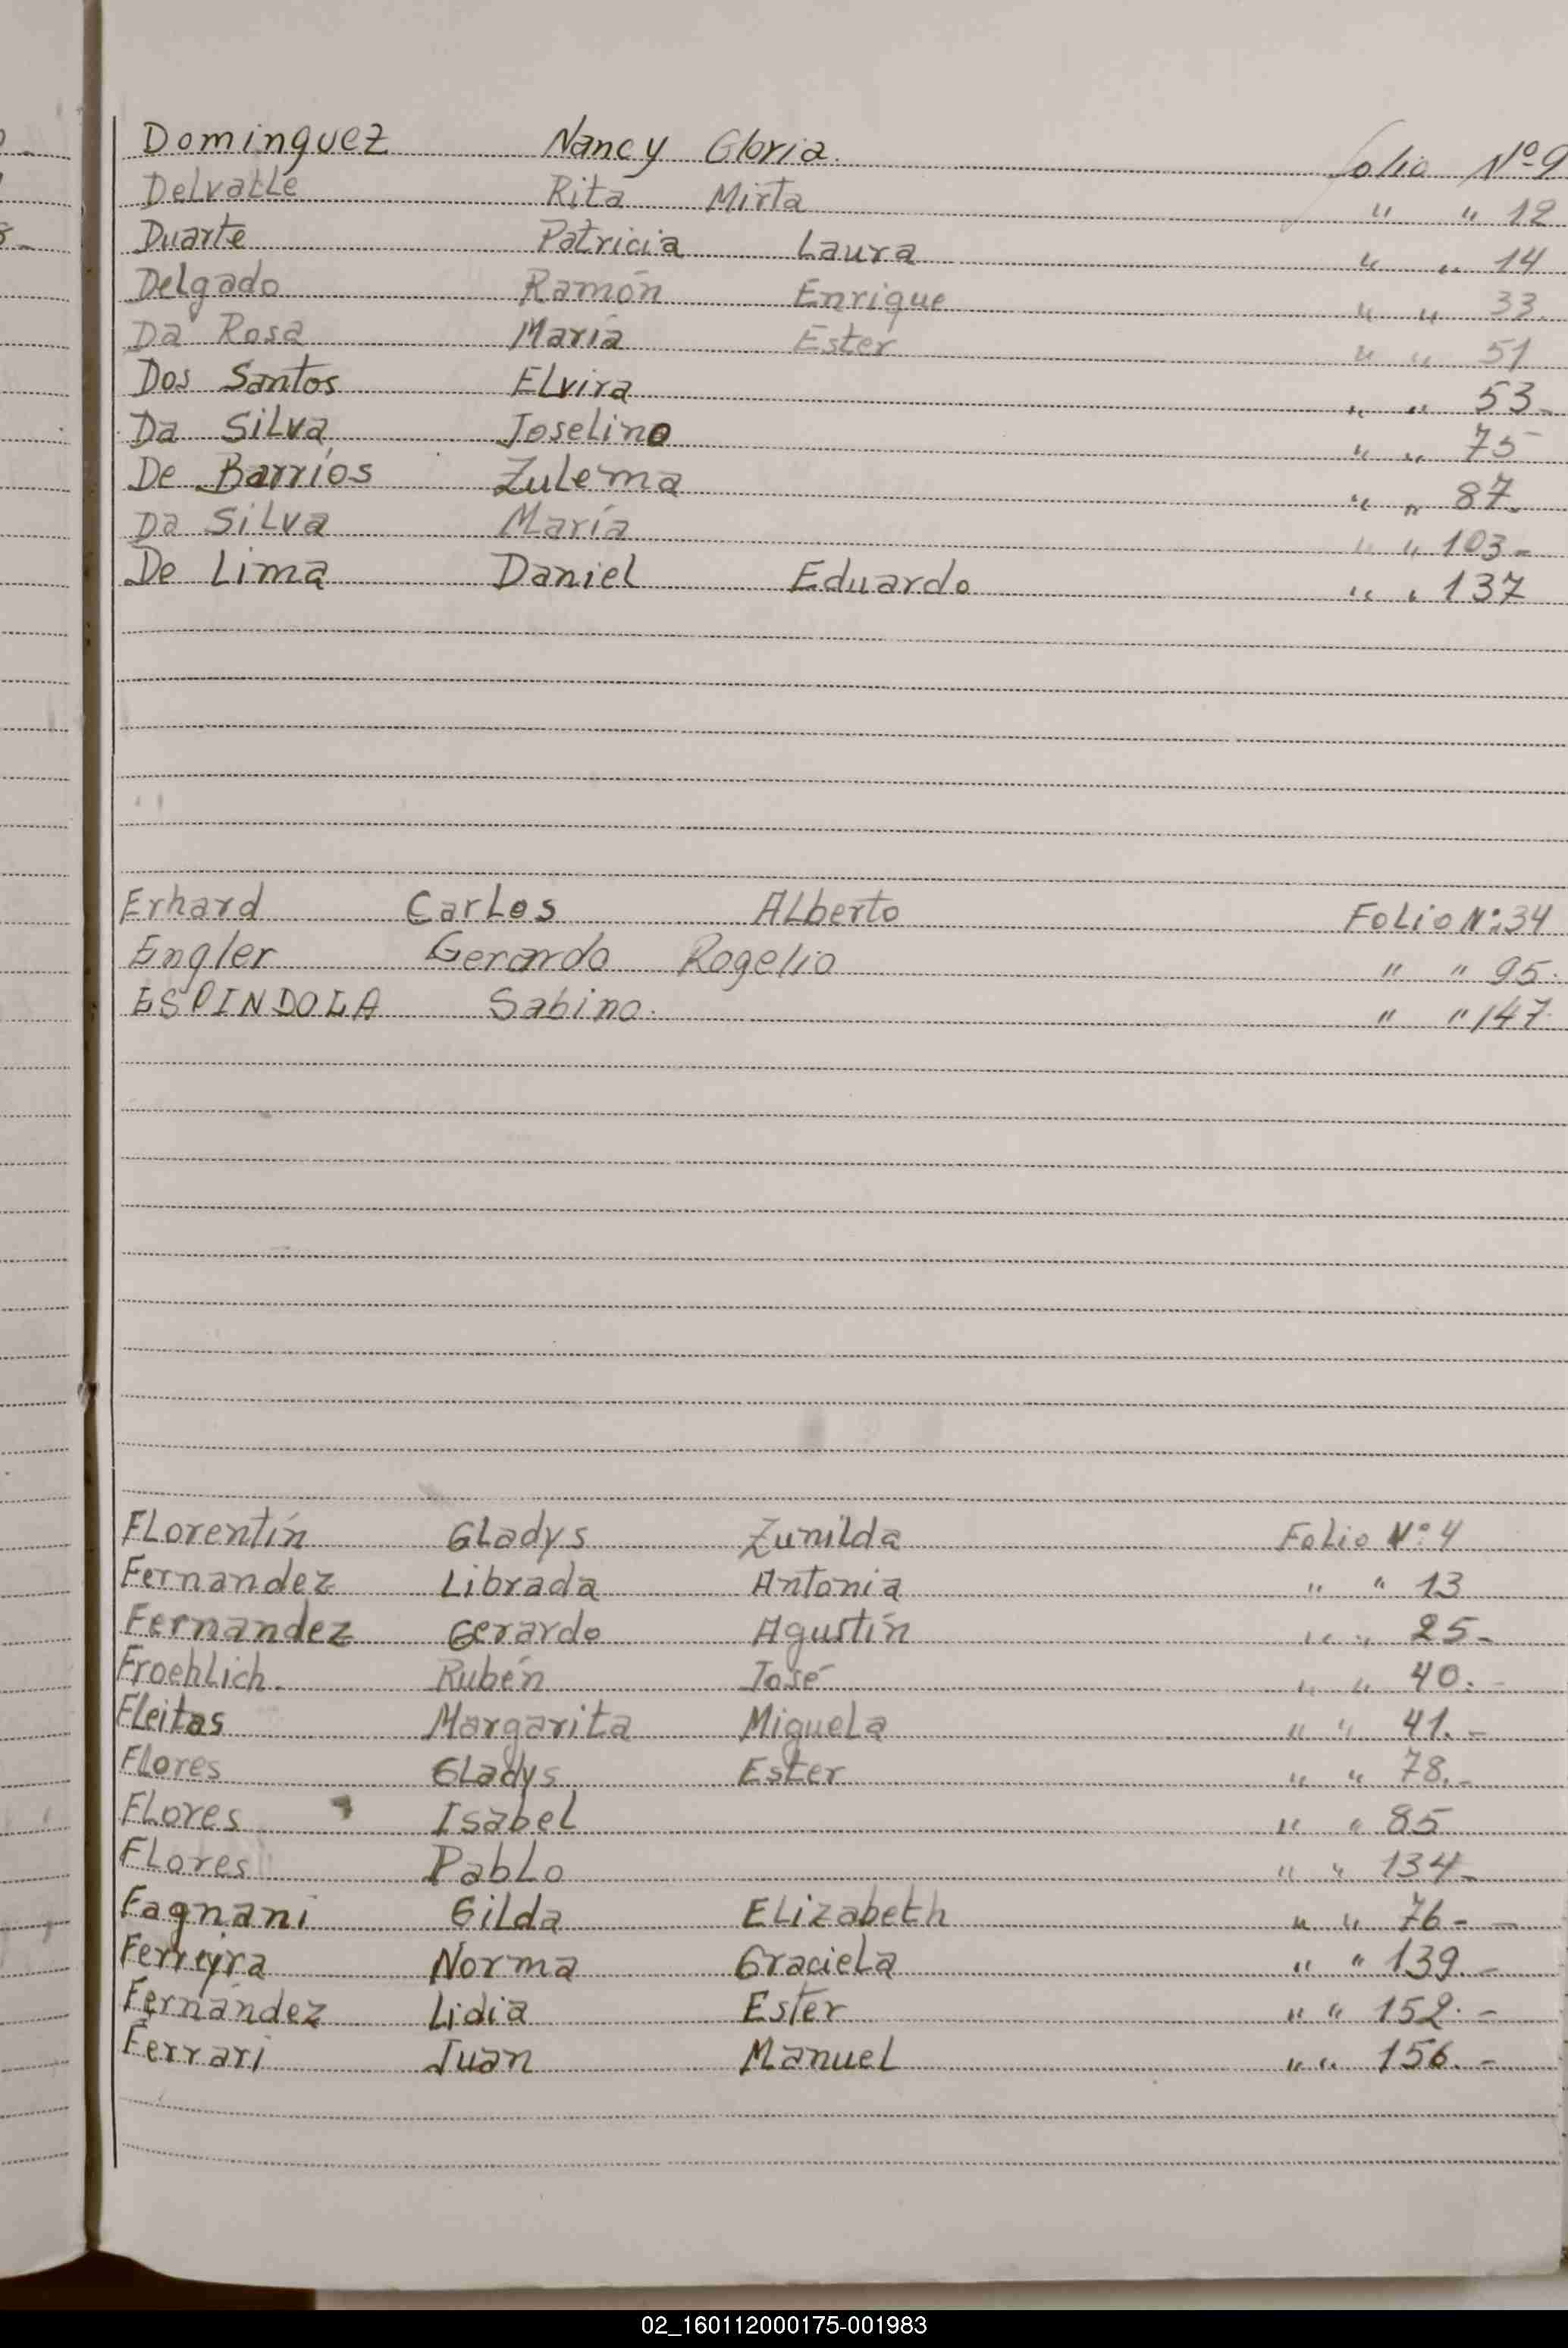 Dominguez Nancy Gloria. folio Nº 9
Delvalle Rita Mirta " " 12
Duarte Patricia Laura " " 14
Delgado Ramón Enrique " " 33.
Da Rosa María Ester " " 51
Dos Santos Elvira " " 53-
Da Silva Joselino " " 75
De Barrios Zulema " " 87-
Da Silva María " " 103-
De Lima Daniel Eduardo " " 137
Erhard Carlos Alberto Folio Nº 34
Engler Gerardo Rogelio " " 95.
ESPINDOLA Sabino. " " 147.
Florentín Gladys Zunilda Folio Nº 4
Fernandez Librada Antonia " " 13
Fernandez Gerardo Agustín " " 25-
Froehlich. Rubén José " " 40.-
Fleitas Margarita Miguela " " 41.-
Flores Gladys Ester " " 78.-
Flores Isabel " " 85
Flores Pablo " " 134-
Fagnani Gilda Elizabeth " " 76--
Ferreyra Norma Graciela " " 139.-
Fernández Lidia Ester " " 152.-
Ferrari Juan Manuel " " 156.-
02_160112000175-001983